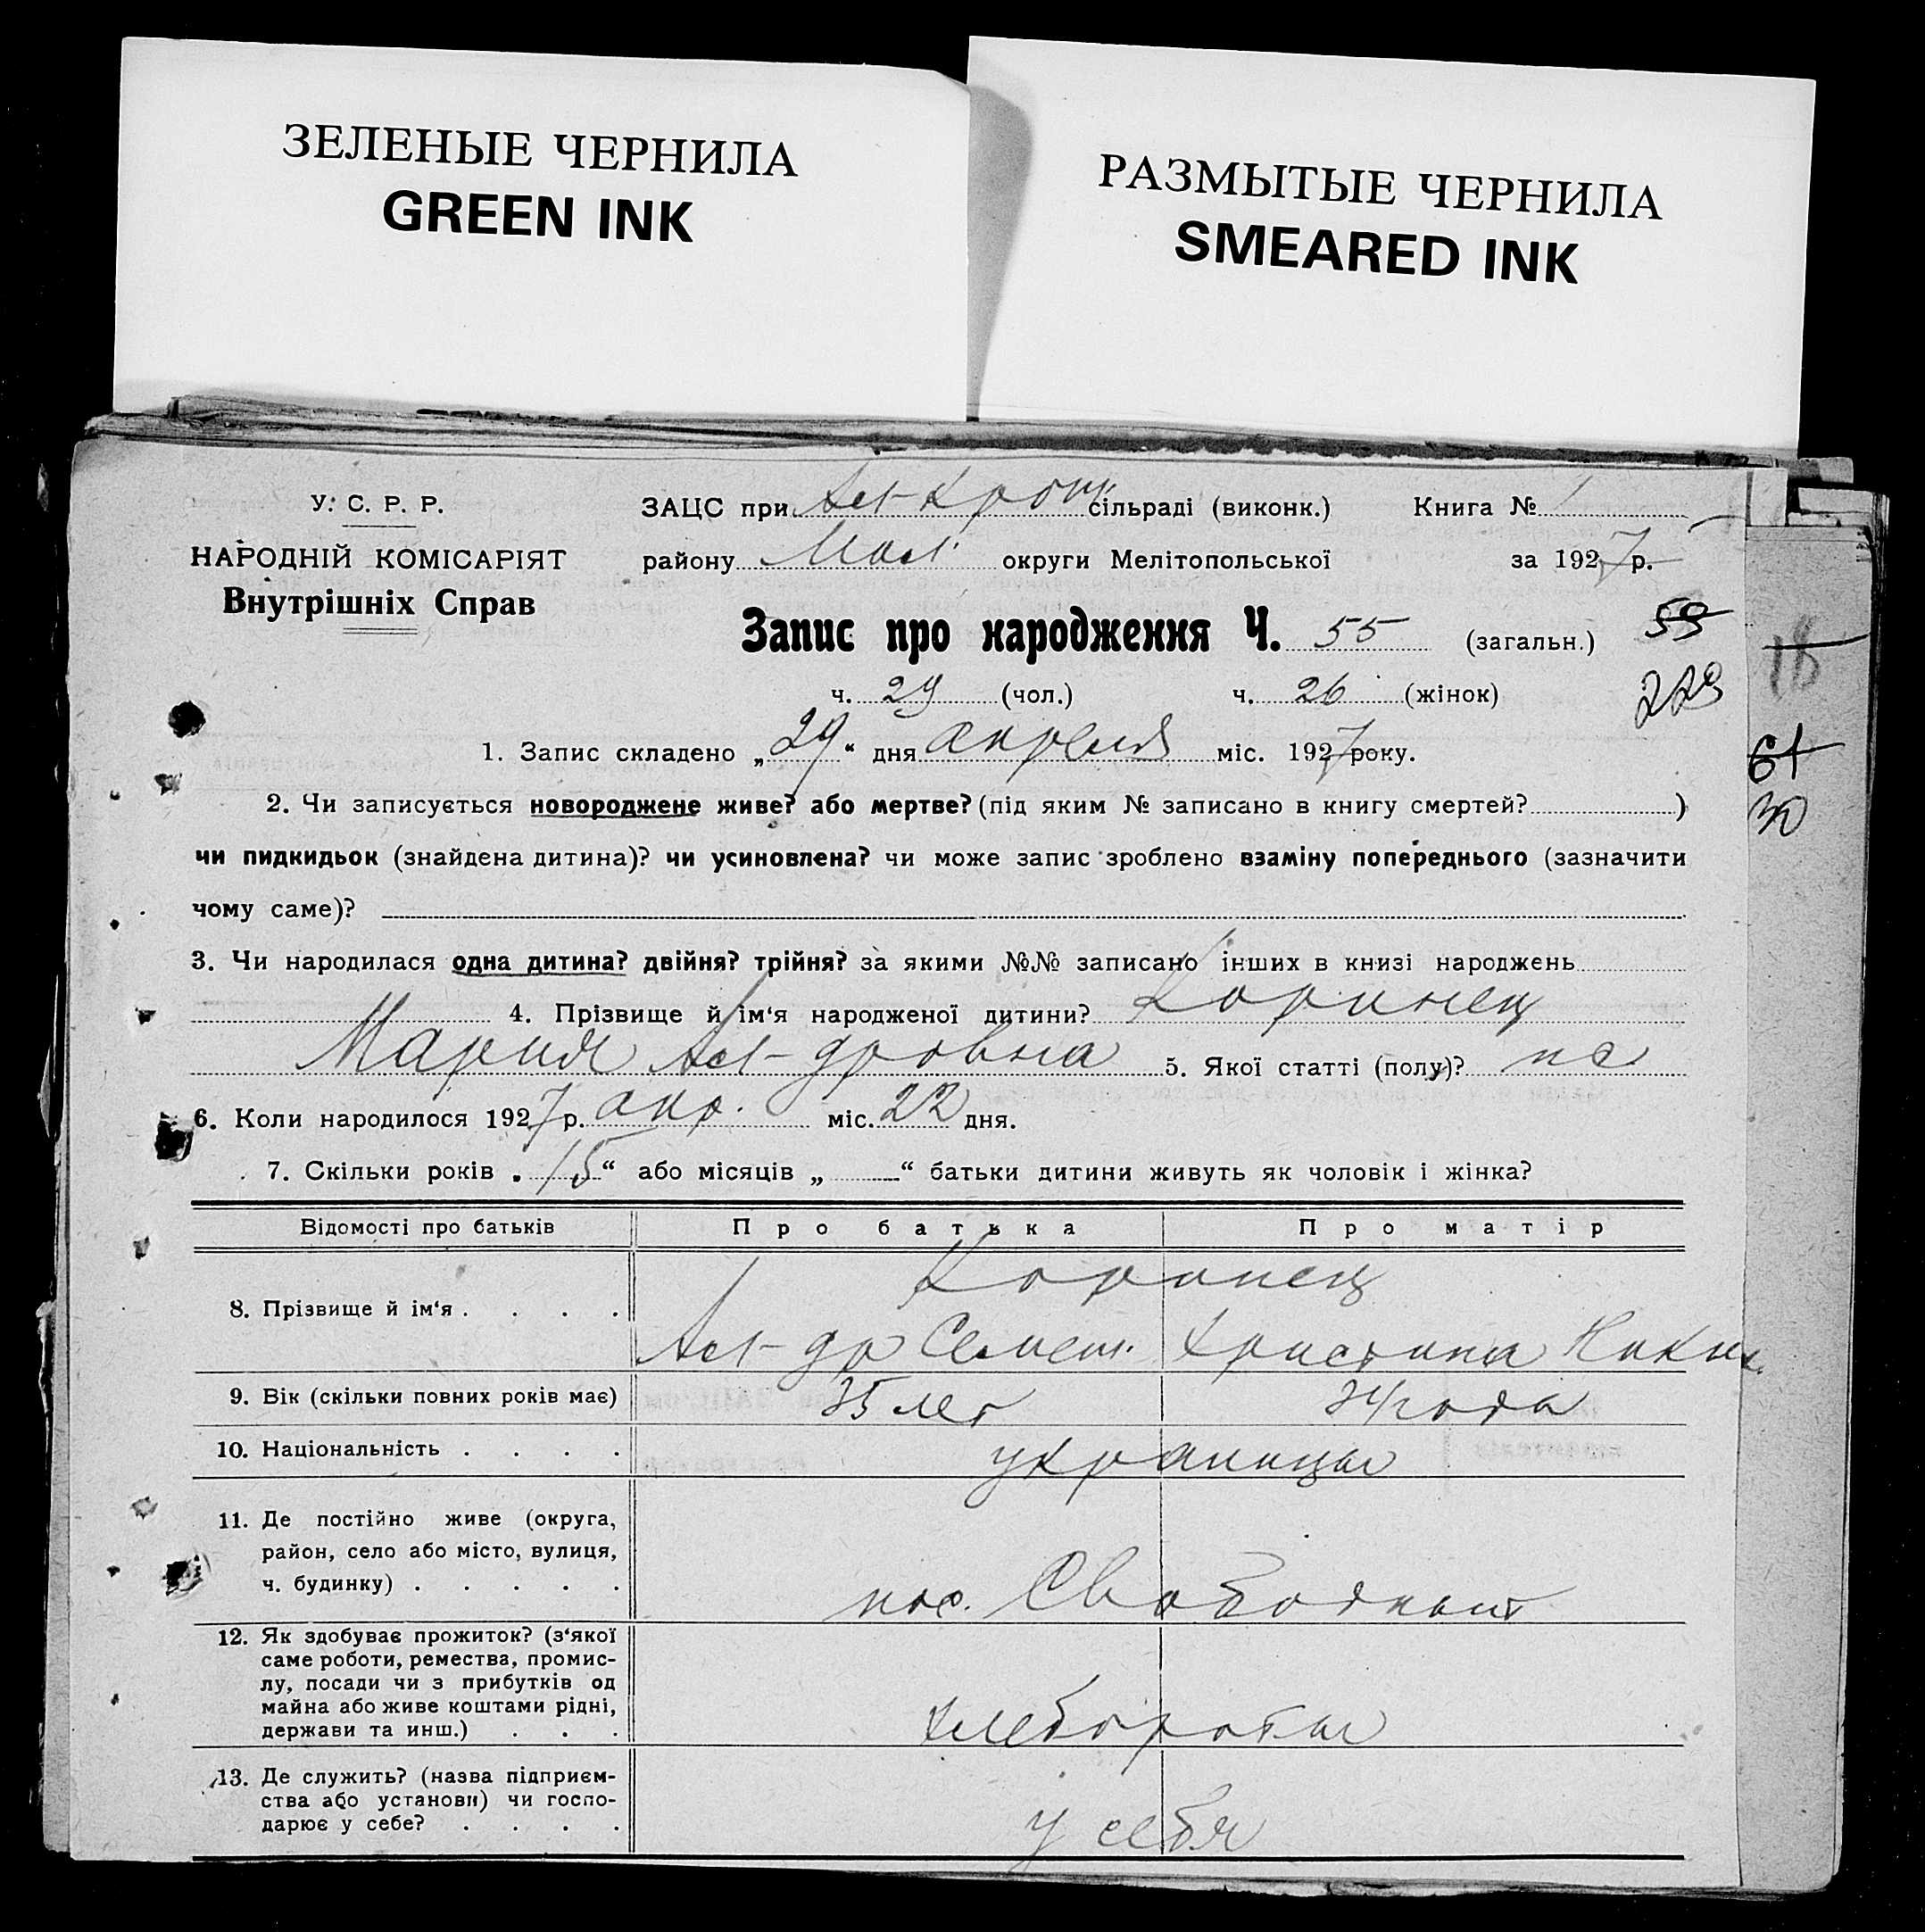 ЗЕЛЕНЫЕ ЧЕРНИЛА
GREEN INK
РАЗМЫТЫЕ ЧЕРНИЛА
SMEARED INK
У. С. Р. Р.
НАРОДНІЙ КОМІСАРІЯТ
Внутрішніх Справ
ЗАЦС при сільраді (виконк.) Книга № 1
району округи Мелітопольської за 1927 р.
Запис про народження Ч. 55 (загальн.) 55
ч. 29 (чол.) ч. 26 (жінок) 229
18
61
30
1. Запис складено „29“ дня апреля міс. 1927 року.
2. Чи записується новороджене живе? або мертве? (під яким № записано в книгу смертей? )
чи пидкидьок (знайдена дитина)? чи усиновлена? чи може запис зроблено взаміну попереднього (зазначити
чому саме)?
3. Чи народилася одна дитина? двійня? трійня? за якими №№ записано інших в книзі народжень
4. Прізвище й ім‘я народженої дитини? Коринец
Мария Ал-дровна 5. Якої статті (полу)?
6. Коли народилося 1927 р. апр. міс. 22 дня.
7. Скільки років „15“ або місяців „ “ батьки дитини живуть як чоловік і жінка?
Відомості про батьків Про батька Про матір
8. Прізвище й ім‘я . . . . Коринец
Ал-др Семен. Христина Никит.
9. Вік (скільки повних років має) 35 лет 34 года
10. Національність . . . . украинцы
11. Де постійно живе (округа,
район, село або місто, вулиця,
ч. будинку) . . . . . пос. Свободный
12. Як здобуває прожиток? (з‘якої
саме роботи, ремества, промис-
лу, посади чи з прибутків од
майна або живе коштами рідні,
держави та инш.) . . . хлеборобы
13. Де служить? (назва підприєм-
ства або установи) чи госпо-
дарює у себе? . . . . у себя